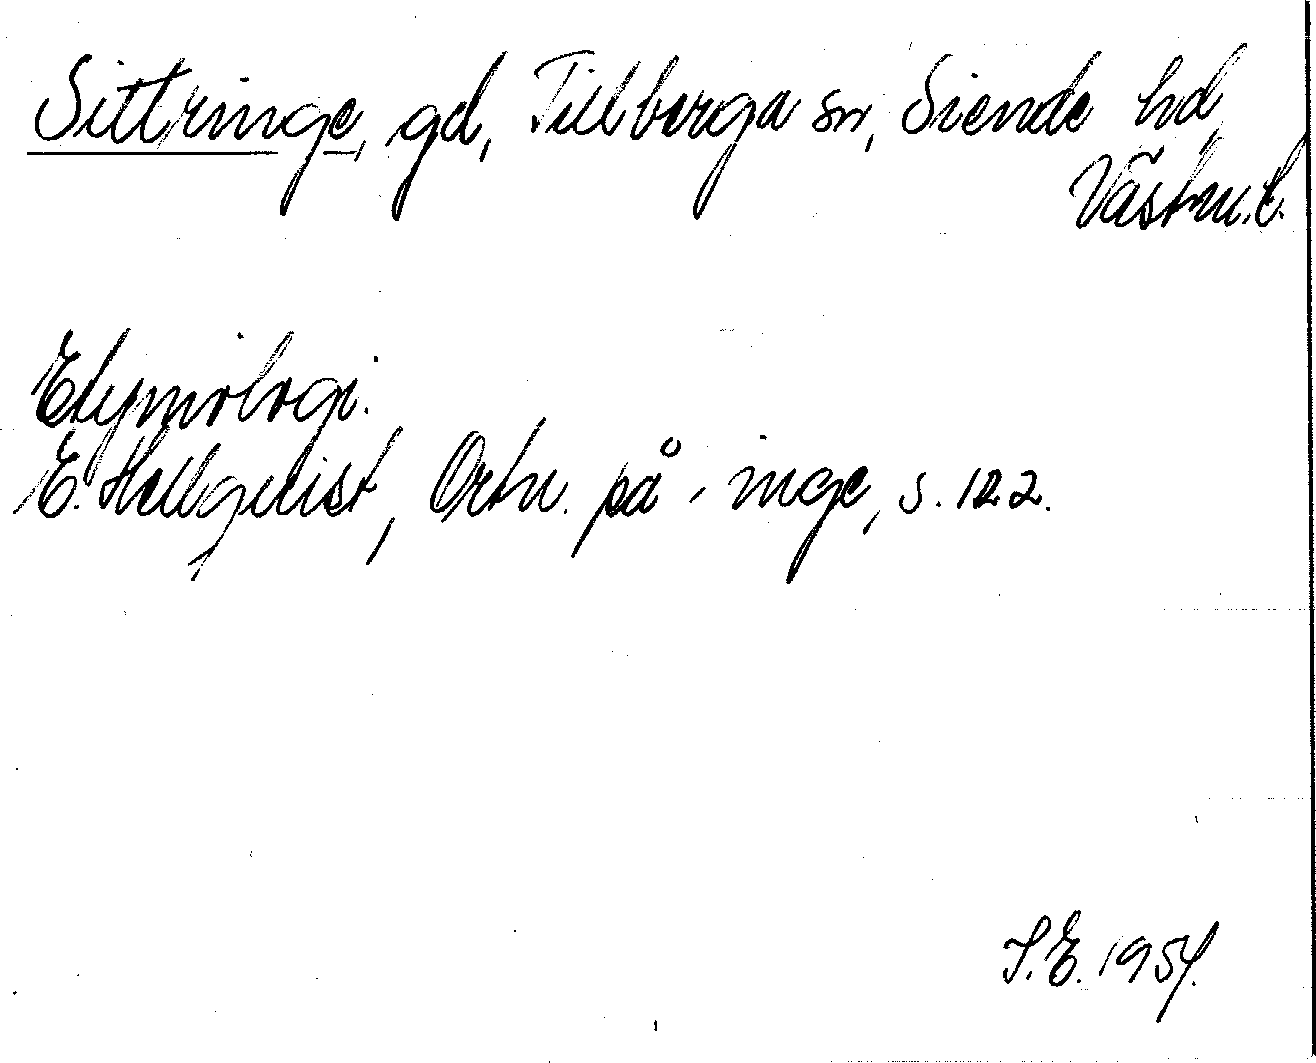 Sittringe, gd, Tillberga sn, Siende hd,
Västm.l.
Etymologi.
E. Hellquist, Ortn. på -inge, s. 122.
S.E. 1954.